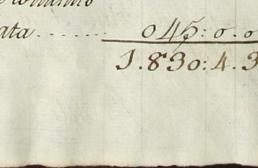 ata ...... 045: 0. 0
1.830: 4. 3